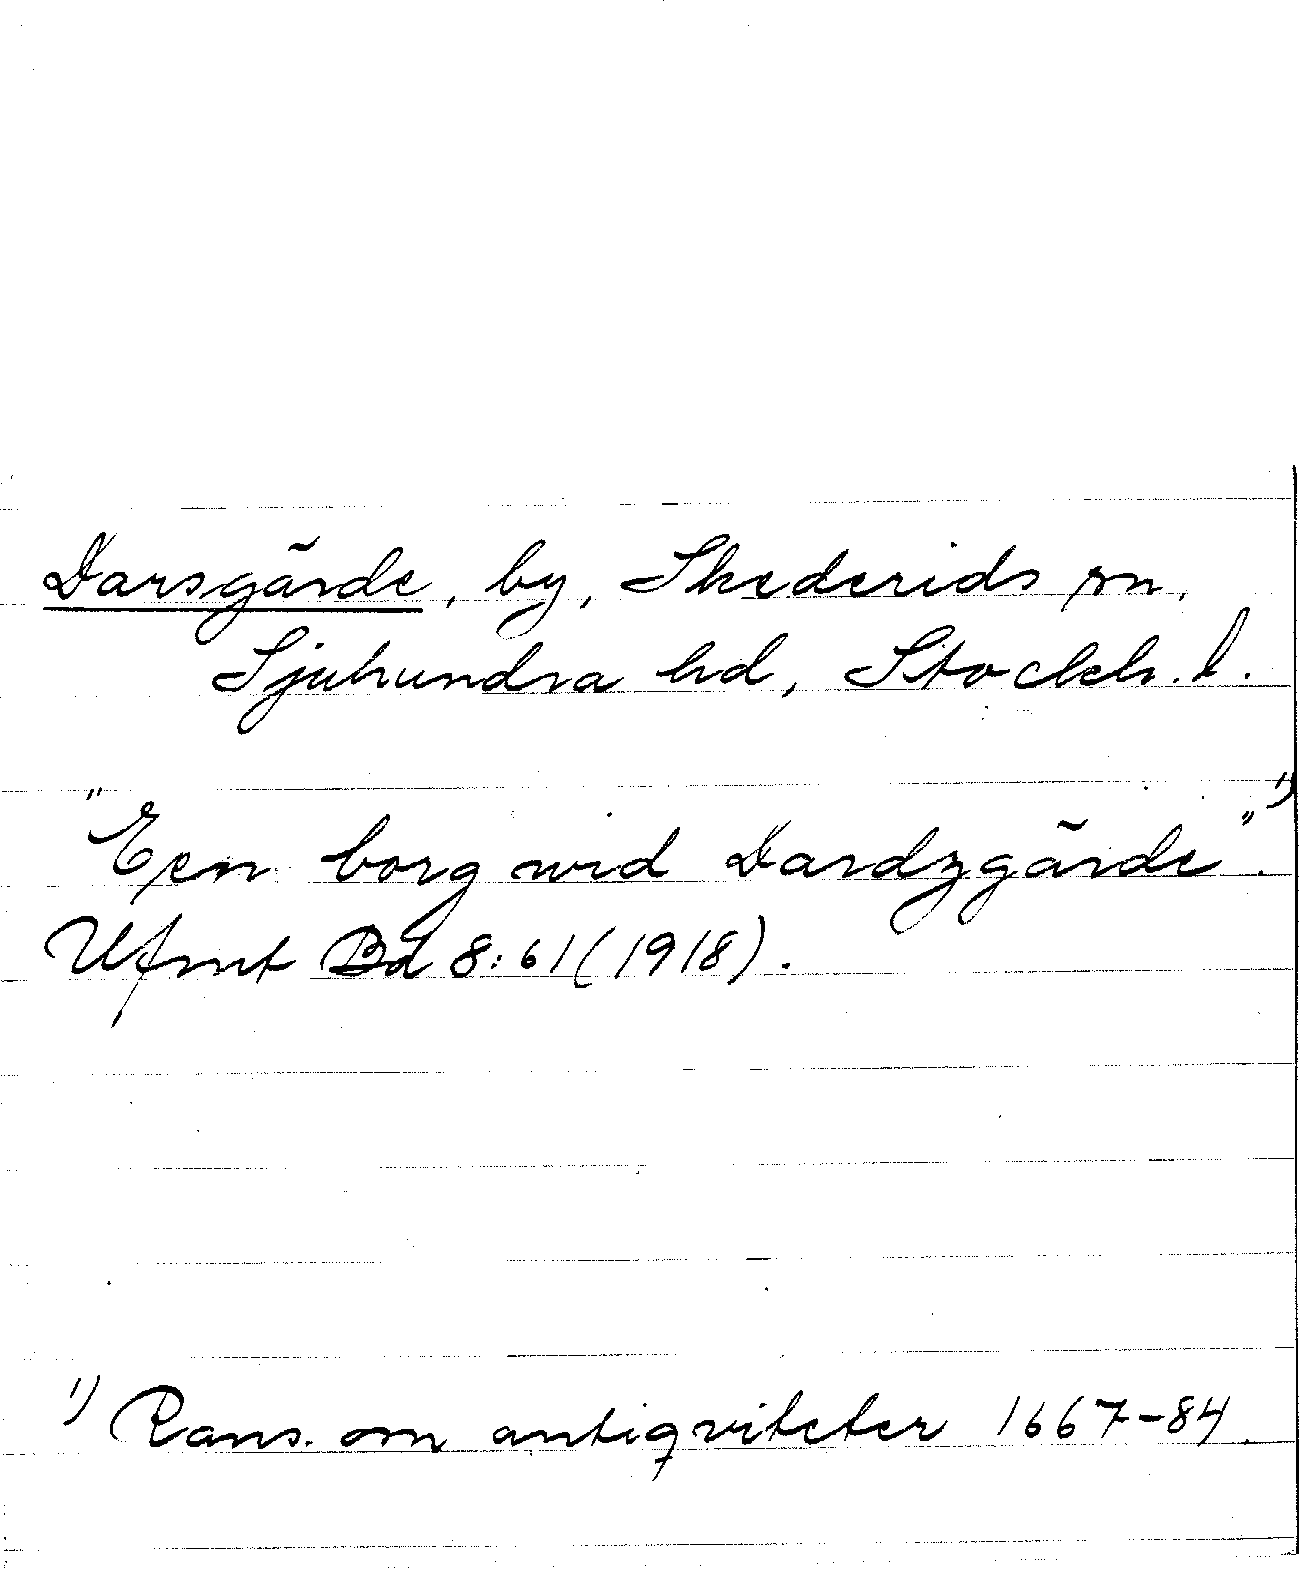 Darsgärde, by, Skederids sn,
Sjuhundra hd, Stockh. l.
"Een borg wid Dardzgärde".¹⁾
Ufmt Bd 8:61 (1918).
¹⁾ Rans. om antiqviteter 1667-84.